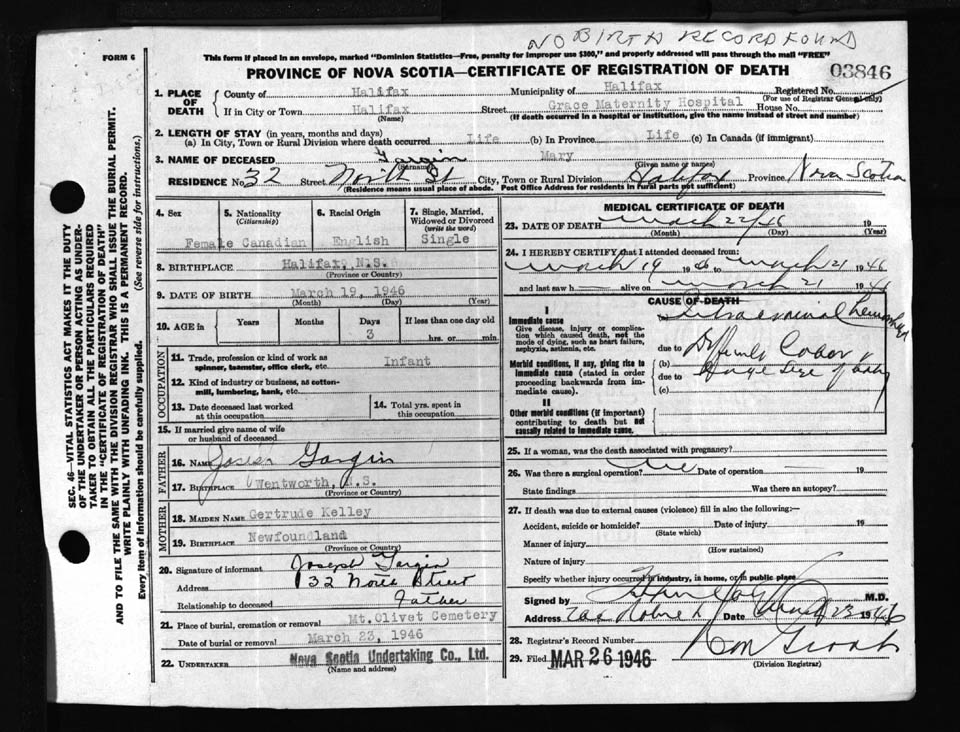 NO BIRTH RECORD FOUND
FORM 6
This form if placed in an envelope, marked "Dominion Statistics—Free, penalty for improper use $300," and properly addressed will pass through the mail "FREE"
PROVINCE OF NOVA SCOTIA—CERTIFICATE OF REGISTRATION OF DEATH
03846
1. PLACE OF DEATH
County of Halifax Municipality of Halifax Registered No.
(For use of Registrar General only)
If in City or Town Halifax Street Grace Maternity Hospital House No.
(Name) (If death occurred in a hospital or institution, give the name instead of street and number)
2. LENGTH OF STAY (in years, months and days)
(a) In City, Town or Rural Division where death occurred Life (b) In Province Life (c) In Canada (if immigrant)
3. NAME OF DECEASED Gargin Mary
(Surname) (Given name or names)
RESIDENCE No. 32 Street North St City, Town or Rural Division Halifax Province Nova Scotia
(Residence means usual place of abode. Post Office Address for residents in rural parts not sufficient)
4. Sex 5. Nationality (Citizenship) 6. Racial Origin 7. Single, Married, Widowed or Divorced (write the word)
Female Canadian English Single
8. BIRTHPLACE Halifax, N.S.
(Province or Country)
9. DATE OF BIRTH March 19, 1946
(Month) (Day) (Year)
10. AGE in Years Months Days 3 If less than one day old hrs. or min.
OCCUPATION
11. Trade, profession or kind of work as spinner, teamster, office clerk, etc. Infant
12. Kind of industry or business, as cotton-mill, lumbering, bank, etc.
13. Date deceased last worked at this occupation
14. Total yrs. spent in this occupation
15. If married give name of wife or husband of deceased
FATHER
16. NAME Joseph Gargin
17. BIRTHPLACE Wentworth, N.S.
(Province or Country)
MOTHER
18. MAIDEN NAME Gertrude Kelley
19. BIRTHPLACE Newfoundland
(Province or Country)
20. Signature of informant Joseph Gargin
Address 32 North Street
Relationship to deceased Father
21. Place of burial, cremation or removal Mt. Olivet Cemetery
Date of burial or removal March 23, 1946
22. UNDERTAKER Nova Scotia Undertaking Co., Ltd.
(Name and address)
MEDICAL CERTIFICATE OF DEATH
23. DATE OF DEATH March 22/46 19
(Month) (Day) (Year)
24. I HEREBY CERTIFY that I attended deceased from:
March 19 1946 to March 21 1946
and last saw h alive on March 21 1946
CAUSE OF DEATH
I
Immediate cause
Give disease, injury or complication which caused death, not the mode of dying, such as heart failure, asphyxia, asthenia, etc.
Intracranial hemorrhage
due to
Morbid conditions, if any, giving rise to immediate cause (stated in order proceeding backwards from immediate cause).
Difficult Labor
(b)
due to Huge size of baby
(c)
II
Other morbid conditions (if important) contributing to death but not causally related to immediate cause.
25. If a woman, was the death associated with pregnancy?
26. Was there a surgical operation? Date of operation 19
State findings Was there an autopsy?
27. If death was due to external causes (violence) fill in also the following:—
Accident, suicide or homicide? Date of injury 19
(State which)
Manner of injury
(How sustained)
Nature of injury
Specify whether injury occurred in industry, in home, or in public place
Signed by M.D.
Address Date March 23 1946
28. Registrar's Record Number
29. Filed MAR 26 1946
(Division Registrar)
SEC. 46—VITAL STATISTICS ACT MAKES IT THE DUTY
OF THE UNDERTAKER OR PERSON ACTING AS UNDER-
TAKER TO OBTAIN ALL THE PARTICULARS REQUIRED
IN THE "CERTIFICATE OF REGISTRATION OF DEATH"
AND TO FILE THE SAME WITH THE DIVISION REGISTRAR WHO SHALL ISSUE THE BURIAL PERMIT.
WRITE PLAINLY WITH UNFADING INK. THIS IS A PERMANENT RECORD.
Every Item of Information should be carefully supplied. (See reverse side for instructions.)